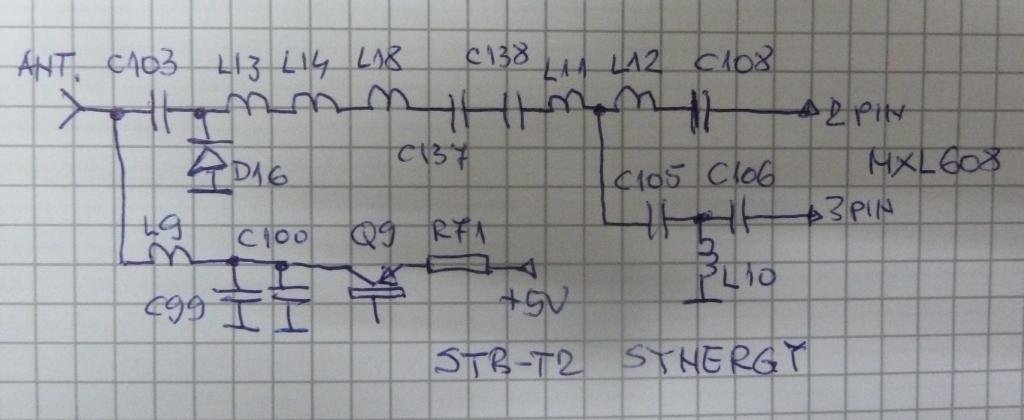 ANT. C103 L13 L14 L18 C138 L11 L12 C108
2 PIN
C137 MXL608
D16 C105 C106
3 PIN
L9 C100 Q9 R71
L10
C99 +5V
STB-T2 SYNERGY